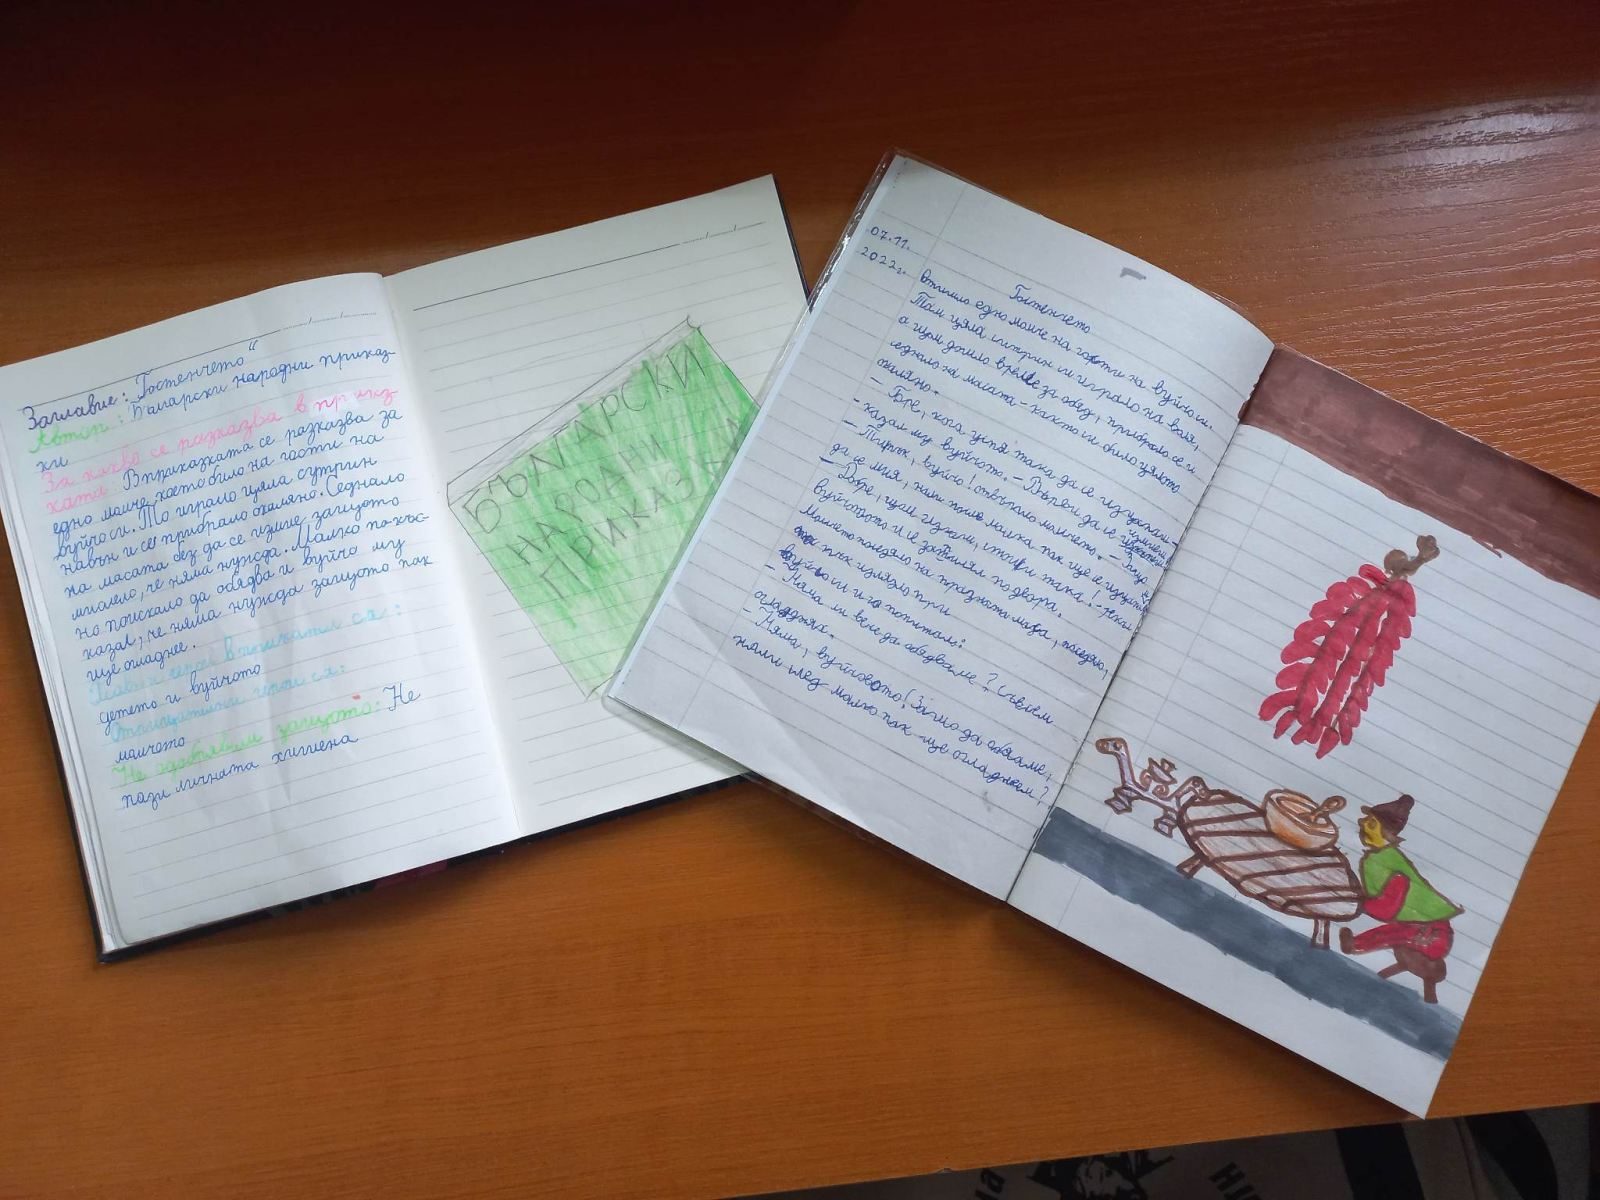 Заглавие: „Гостенчето“
Автор: Български народни приказ-
ки
За какво се разказва в приказ-
ката: В приказката се разказва за
едно момче, което било на гости на
вуйчо си. То играло цяла сутрин
навън и се прибрало окаляно. Седнало
на масата без да се измие защото
мислело, че няма нужда. Малко по-къс-
но поискало да обядва и вуйчо му
казал, че няма нужда защото пак
ще огладнее.
Главни герои в приказката са:
детето и вуйчото
Отрицателни герои са:
момчето
Не одобрявам защото: Не
пази личната хигиена
БЪЛГАРСКИ
НАРОДНИ
ПРИКАЗКИ
07.11.
2022г.
Гостенчето
Отишло едно момче на гости на вуйчо си.
Там цяла сутрин си играло на воля,
а щом дошло време за обяд, прибрало се и
седнало на масата - както си било цялото
окаляно.
- Бре, кога успя така да се изцапаш -
казал му вуйчото. - Върви да се измиеш.
- Тцък, вуйчо! отвърнало момчето. - Защо
да се мия, нали после пак ще се изцапам?
- Добре, щом искаш, стой и така! - рекъл
вуйчото и се запилял по двора.
Момчето поседяло на празната маса, поседяло,
па пък излязло при
вуйчо си и го попитало:
- Няма ли вече да обядваме? Съвсем
огладнях.
- Няма, вуйчовото! Защо да обядваме,
нали след малко пак ще огладнеем?
На
НИ